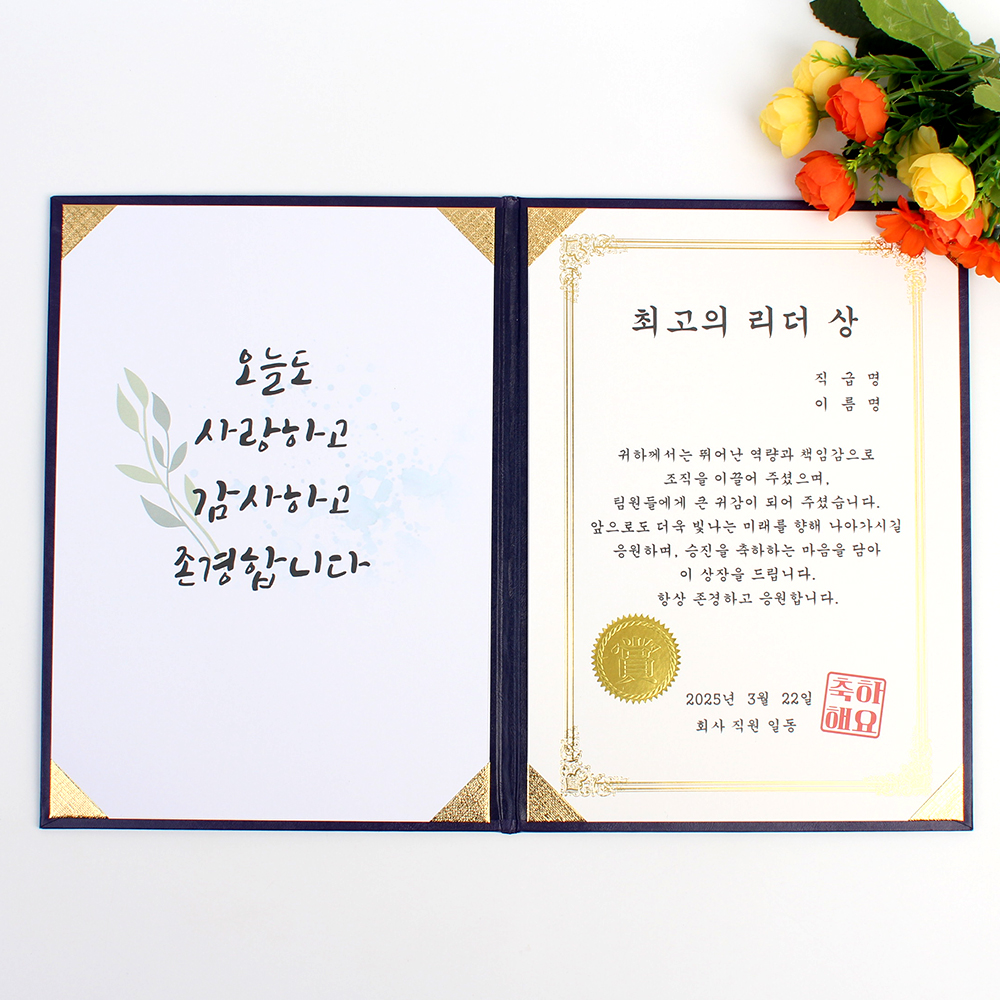 오늘도
사랑하고
감사하고
존경합니다
최고의 리더 상
직 급 명
이 름 명
귀하께서는 뛰어난 역량과 책임감으로
조직을 이끌어 주셨으며,
팀원들에게 큰 귀감이 되어 주셨습니다.
앞으로도 더욱 빛나는 미래를 향해 나아가시길
응원하며, 승진을 축하하는 마음을 담아
이 상장을 드립니다.
항상 존경하고 응원합니다.
賞
2025년 3월 22일
회사 직원 일동
축하
해요